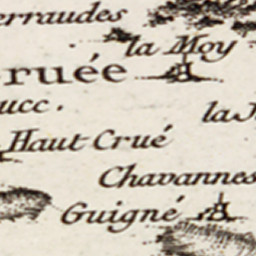 erraudes
la Moy
ruée
ucc.
la
Haut Crué
Chavannes
Guigné